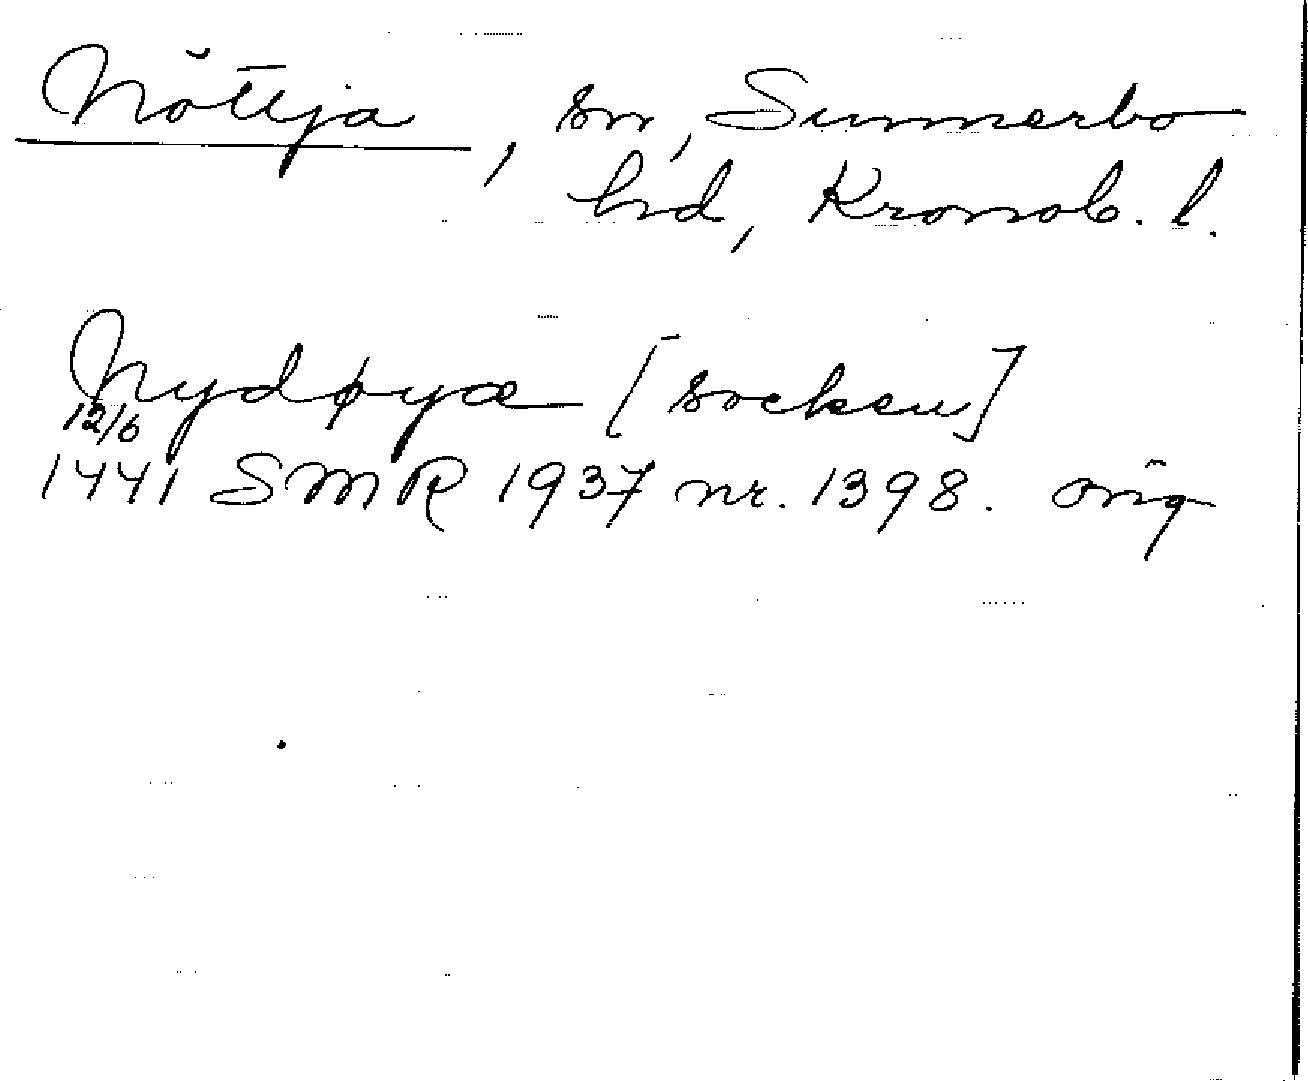 Nöttja, sn, Sunnerbo
hd, Kronob. l.
Nydøyæ [socken]
12/6
1441 SMR 1937 nr. 1398. orig